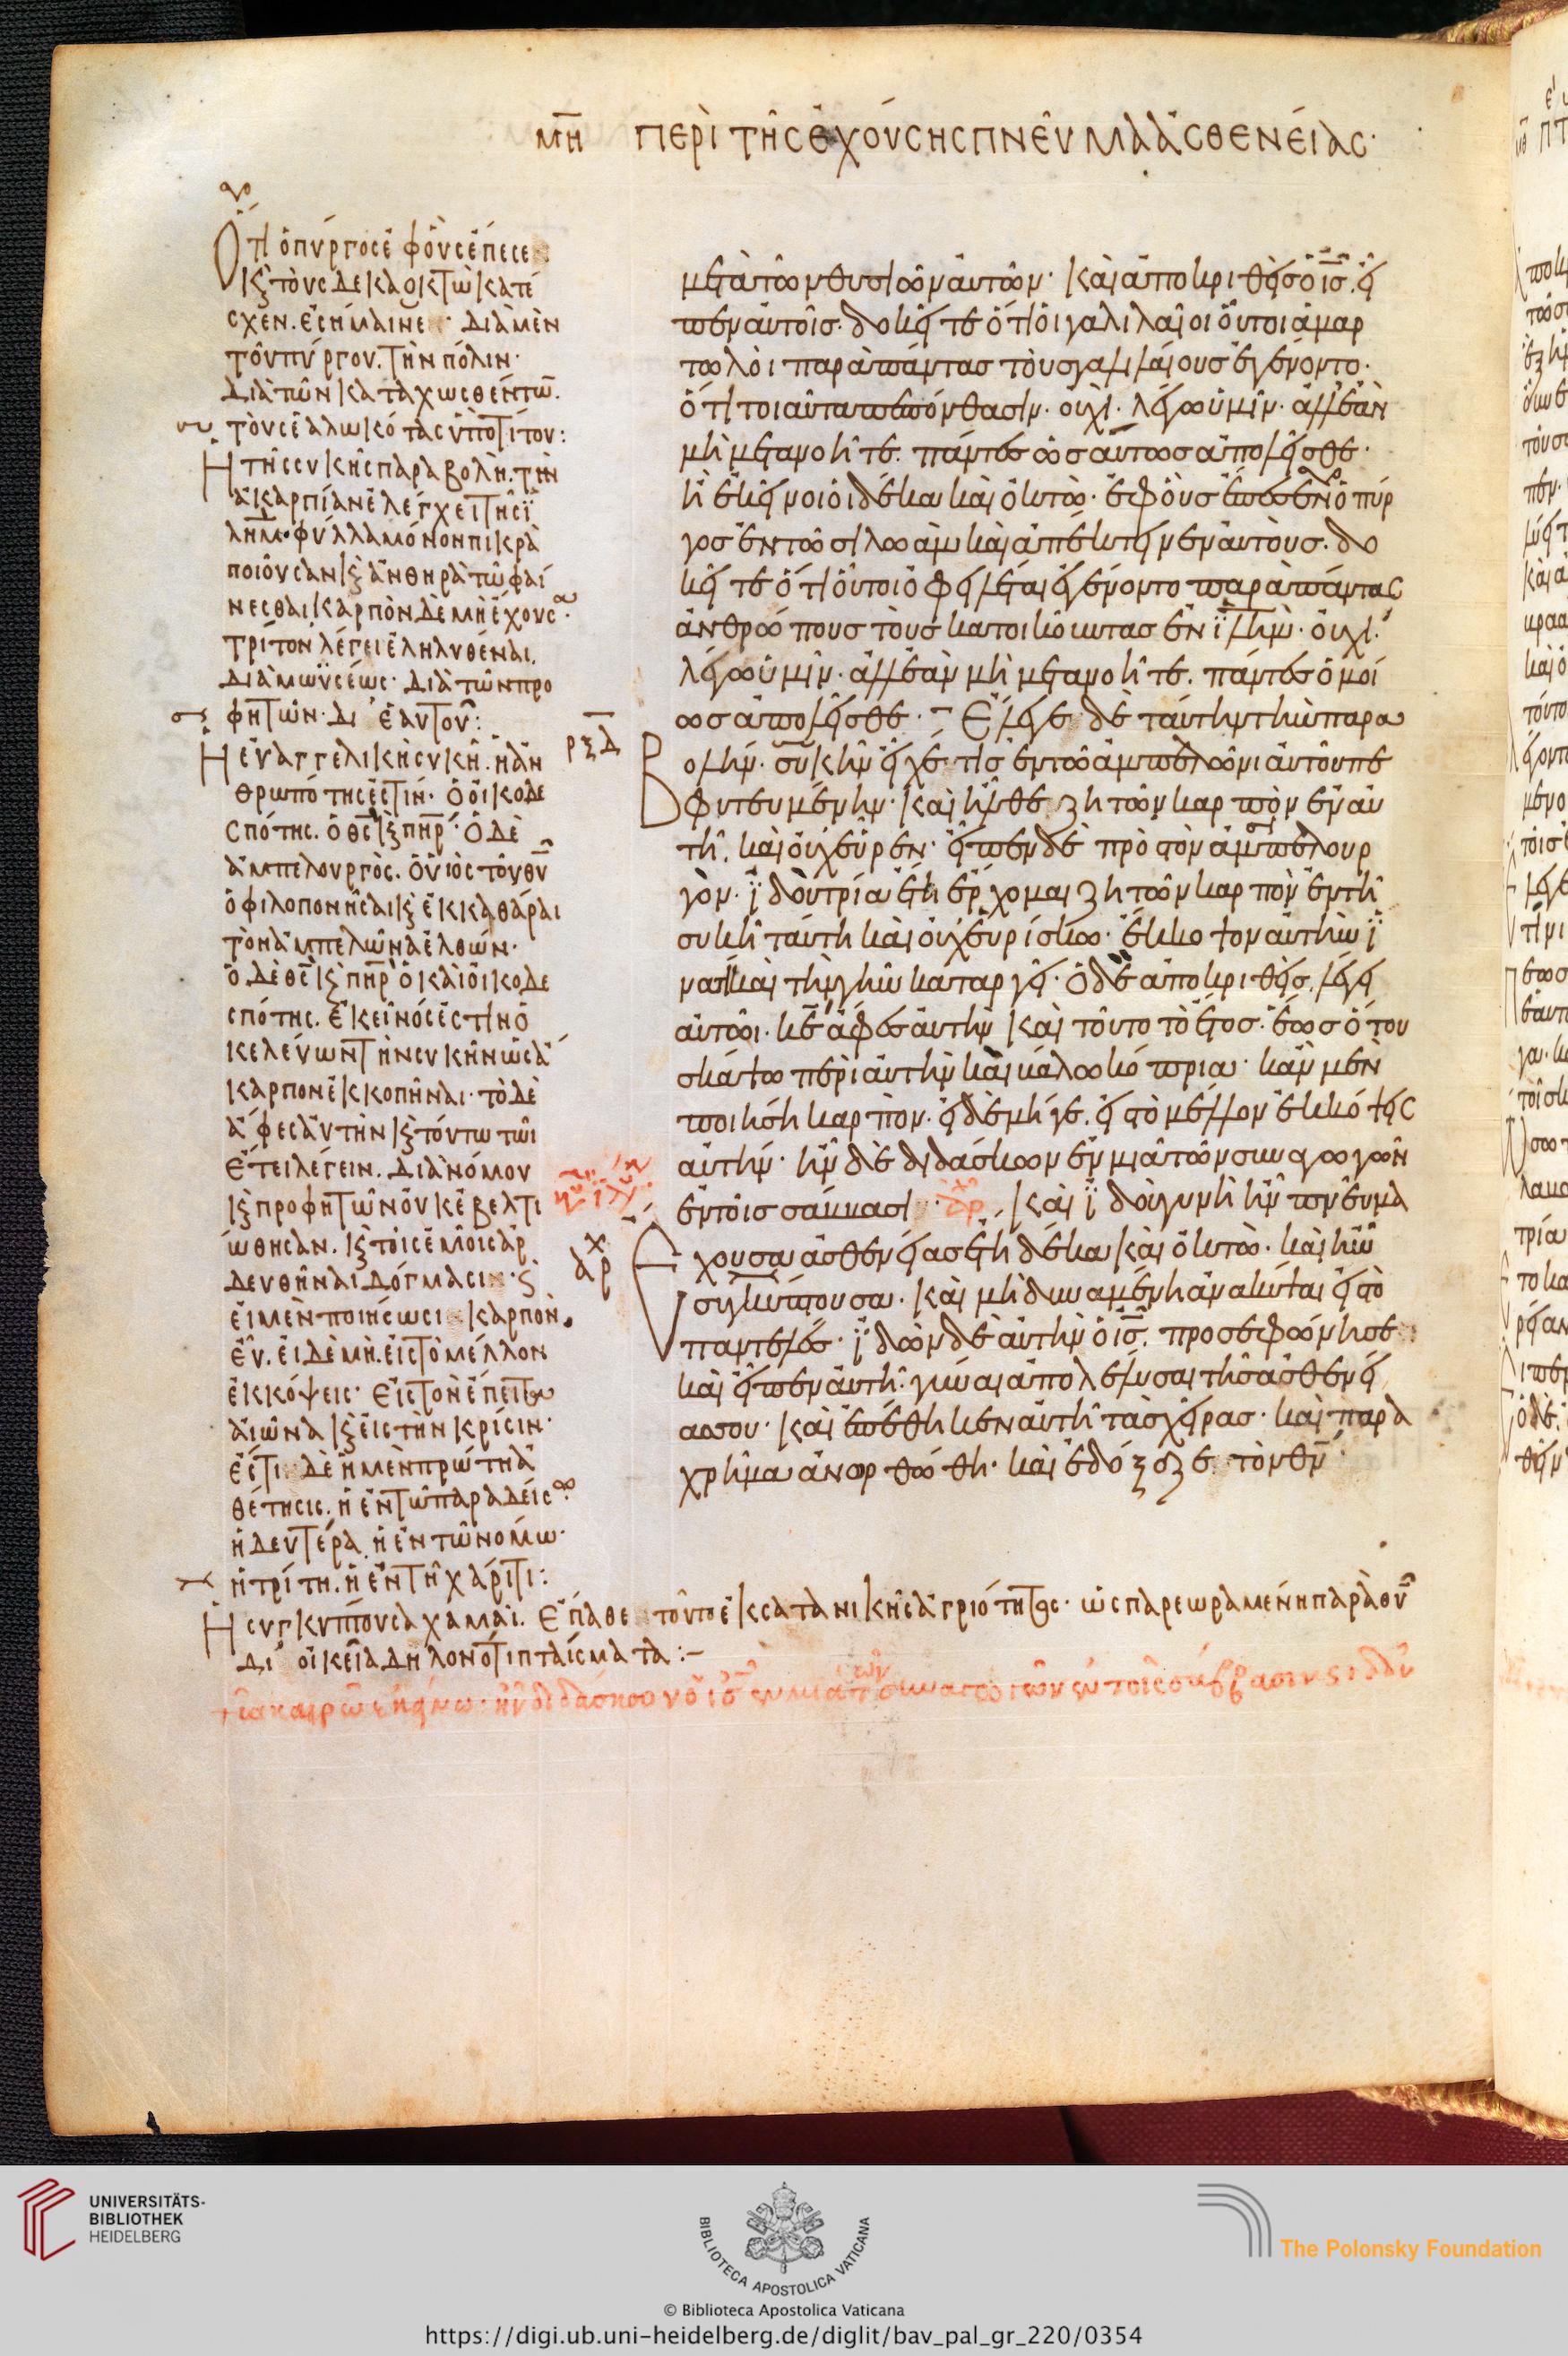 μη περὶ τῆς ἐχούσης πνεῦμα ἀσθενείας·
Ὅτι ὁ πύργος ἐφ οὓς ἔπεσε
κ τοὺς δεκαοκτὼ κατέ
σχεν. ἐσήμαινε· διὰ μὲν
τοῦ πύργου. τὴν πόλιν·
διὰ τῶν καταχωσθέντω̅.
τοὺς ἑαλωκότας ὑπὸ τίτου:
Ἡ τῆς συκῆς παραβολὴ. τὴν
ἀκαρπίαν ἐλέγχει τῆς ϊ
λημ. φύλλα μόνον πικρὰ
ποιοῦσαν κ ἀνθηρὰ τῶ φαί
νεσθαι καρπὸν δὲ μὴ ἐχουσα·
τρίτον λέγει ἐληλυθέναι.
διὰ μωϋσέως· διὰ τῶν προ
φητῶν· δι' ἑαυτοῦ:
Ἡ εὐαγγελικὴ συκῆ. ἡ ἀν
θρωπότης ἐστίν· ὁ οἰκοδε
σπότης. ὁ θς κ πηρ· ὁ δὲ
ἀμπελουργὸς. ὁ υἱὸς τοῦ θυ
ὁ φιλοπονῆσαι κ ἐκκαθάραι
τὸν ἀμπελῶνα ἐλθών·
ὁ δὲ θς κ πηρ ὁ καὶ οἰκοδε
σπότης. ἐκεῖνός ἐστιν ὁ
κελεύων τὴν συκῆν ὡς ἀ
καρπον ἐκκοπῆναι· τὸ δὲ
ἄφες αὐτὴν κ τούτω τῶι
ἔτει λέγειν. διὰ νόμου
κ προφητῶν οὐκ ἐβελτι
ώθησαν. κ τοῖς ἐμοῖς ἀρ
δευθῆναι δόγμασιν·
εἰ μὲν ποιήσωσι καρπὸν.
εὖ. εἰ δὲ μὴ. εἰς τὸ μέλλον
ἐκκόψεις· εἰς τὸν ἔπειτα
αἰῶνα κ εἰς τὴν κρίσιν·
ἔστι δὲ ἡ μὲν πρώτη ἀ
θέτησις. ἡ ἐν τῶ παραδείσω·
ἡ δευτέρα. ἡ ἐν τῶ νόμω·
ἡ τρίτη. ἡ ἐν τῆ χάριτι:
Ἡ συγκύπτουσα χαμαὶ. ἔπαθε τοῦτο ἐκ σατανικῆς ἀγριότητος· ὡς παρεωραμένη παρὰ θυ
δι' οἰκεῖα δηλονότι πταίσματα:–
μετὰ τῶν θυσιῶν αὐτῶν· καὶ ἀποκριθεὶς ὁ ις. εἶ
πεν αὐτοῖς· δοκεῖτε ὅτι οἱ γαλιλαῖοι οὗτοι ἁμαρ
τωλὸι παρὰ πάντας τοὺς γαλιλαίους ἐγένοντο·
ὅτι τοιαῦτα πεπόνθασιν· οὐχὶ· λέγω ὑμῖν· ἀλλ ἐὰν
μὴ μετανοῆτε. πάντες ὡσαύτως ἀπολεῖσθε·
ἢ ἐκεῖνοι οἱ δέκα καὶ ὀκτὼ· ἐφ οὓς ἔπεσεν ὁ πύρ
γος ἐν τῶ σιλωὰμ καὶ ἀπέκτεινεν αὐτοὺς. δο
κεῖτε ὅτι οὗτοι ὀφειλέται ἐγένοντο παρὰ πάντας
ἀνθρώπους τοὺς κατοικοῦντας ἐν ϊλημ· οὐχὶ·
λέγω ὑμῖν· ἀλλ ἐὰν μὴ μετανοῆτε. πάντες ὁμοί
ως ἀπολεῖσθε· Ἔλεγε δὲ ταύτην τὴν παρα
ρξδ
βολήν. συκῆν εἶχέ τις ἐν τῶ ἀμπελῶνι αὐτοῦ πε
φυτευμένην· καὶ ἦλθε ζητῶν καρπὸν ἐν αὐ
τῆ. καὶ οὐχ εὗρεν· εἶπεν δὲ πρὸς τὸν ἀμπελουρ
γὸν· ϊδοὺ τρία ἔτη ἔρχομαι ζητῶν καρπὸν ἐν τῆ
συκῆ ταύτη καὶ οὐχ εὑρίσκω· ἔκκοψον αὐτὴν ϊ
νατί καὶ τὴν γῆν καταργεῖ· ὁ δὲ ἀποκριθεὶς. λέγει
αὐτῶι· κε ἄφες αὐτὴν καὶ τοῦτο τὸ ἔτος. ἕως ὅτου
σκάψω περὶ αὐτὴν καὶ βάλω κόπρια· κἂν μὲν
ποιήση καρπὸν. εἰ δὲ μήγε. εἰς τὸ μέλλον ἐκκόψεις
αὐτήν· ἦν δὲ διδάσκων ἐν μιᾶ τῶν συναγωγῶν
ἐν τοῖς σάββασι· αρχ καὶ ϊδοὺ γυνὴ ἦν πνευμα
αρχ
Ἔχουσα ἀσθενείας ἔτη δέκα καὶ ὀκτὼ· καὶ ἦν
συγκύπτουσα· καὶ μὴ δυναμένη ἀνακύψαι εἰς τὸ
παντελές· ϊδὼν δὲ αὐτὴν ὁ ις. προσεφώνησε
καὶ εἶπεν αὐτῆ· γύναι ἀπολέλυσαι τῆς ἀσθενεί
ας σου· καὶ ἐπέθηκεν αὐτῆ τὰς χεῖρας· καὶ παρα
χρῆμα ἀνωρθώθη· καὶ ἐδόξαζε τὸν θν·
τῶ καιρῶ ἐκείνω· ἦν διδάσκων ὁ ις ἐν μιᾶ τῶν συναγωγῶν ἐν τοῖς σάββασιν
UNIVERSITÄTS-
BIBLIOTHEK
HEIDELBERG
BIBLIOTECA APOSTOLICA VATICANA
The Polonsky Foundation
© Biblioteca Apostolica Vaticana
https://digi.ub.uni-heidelberg.de/diglit/bav_pal_gr_220/0354